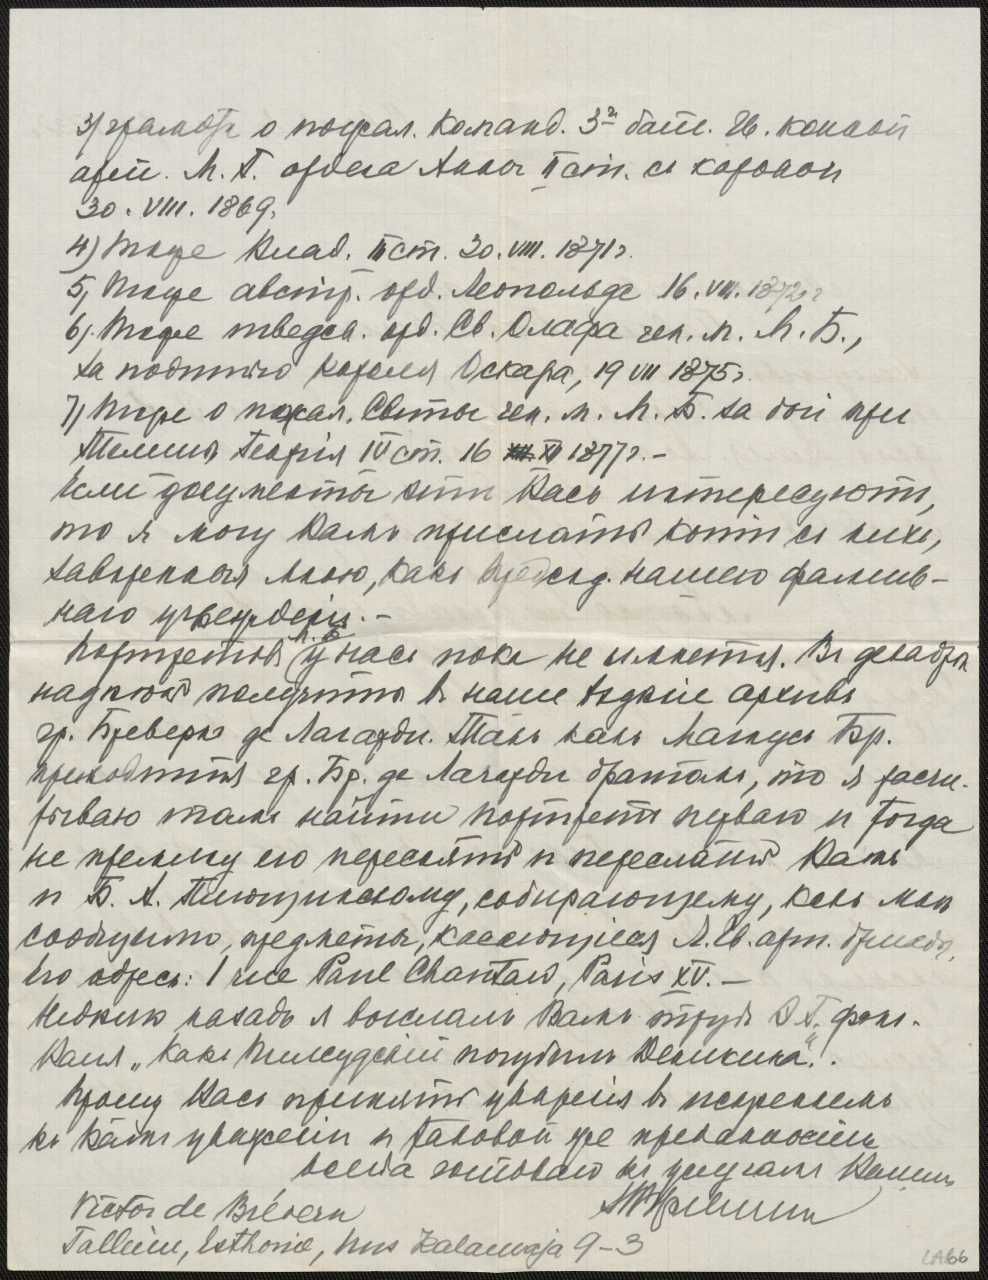 3) грамота о пожал. Команд. 3й бат. Гв. конной
арт. М. Б. ордена Анны II ст. съ короной
30. VIII. 1869.
4) Тоже Влад. III ст. 30. VIII. 1871 г.
5) Тоже австр. орд. Леопольда 16. VIII. 1872 г
6). Тоже шведск. орд. Св. Олафа ген. м. М. Б.,
короля Оскара, 19 VII 1875 г.
7) Тоже о пожал. Свиты ген. м. М. Б. за бой при
Телише Георгія IV ст. 16 XI 1877 г. –
Если документы эти Васъ интересуютъ,
то я могу Вамъ прислать копіи съ нихъ,
завѣренныя мною, какъ предсѣд. нашего фамиль-
наго учрежденія. –
Портретовъ М. Б. у насъ пока не имѣется. Въ декабрѣ
надѣюсь получить въ наше вѣдѣніе архивъ
гр. Бреверна де Лагарди. Такъ какъ Магнусъ Бр.
приходится гр. Бр. де Лагарди братомъ, то я расчи-
тываю тамъ найти портретъ перваго и тогда
не премину его переснять и переслать Вамъ
и Б. А. собирающему, какъ мнѣ
сообщили, предметы, касающіеся Л. Гв. арт. бригады,
Его адресъ: 1 rue Paul Chautard, Paris XV. –
Недѣлю назадъ я выслалъ Вамъ трудъ
„Какъ Пилсудскій погубилъ Деникина“.
Прошу Васъ принять увѣренія въ искреннемъ
къ Вамъ уваженіи и таковой же преданности
всегда готоваго къ услугамъ Вашимъ
Victor de Brévern
Tallinn, Esthonie, Kalamaja 9–3